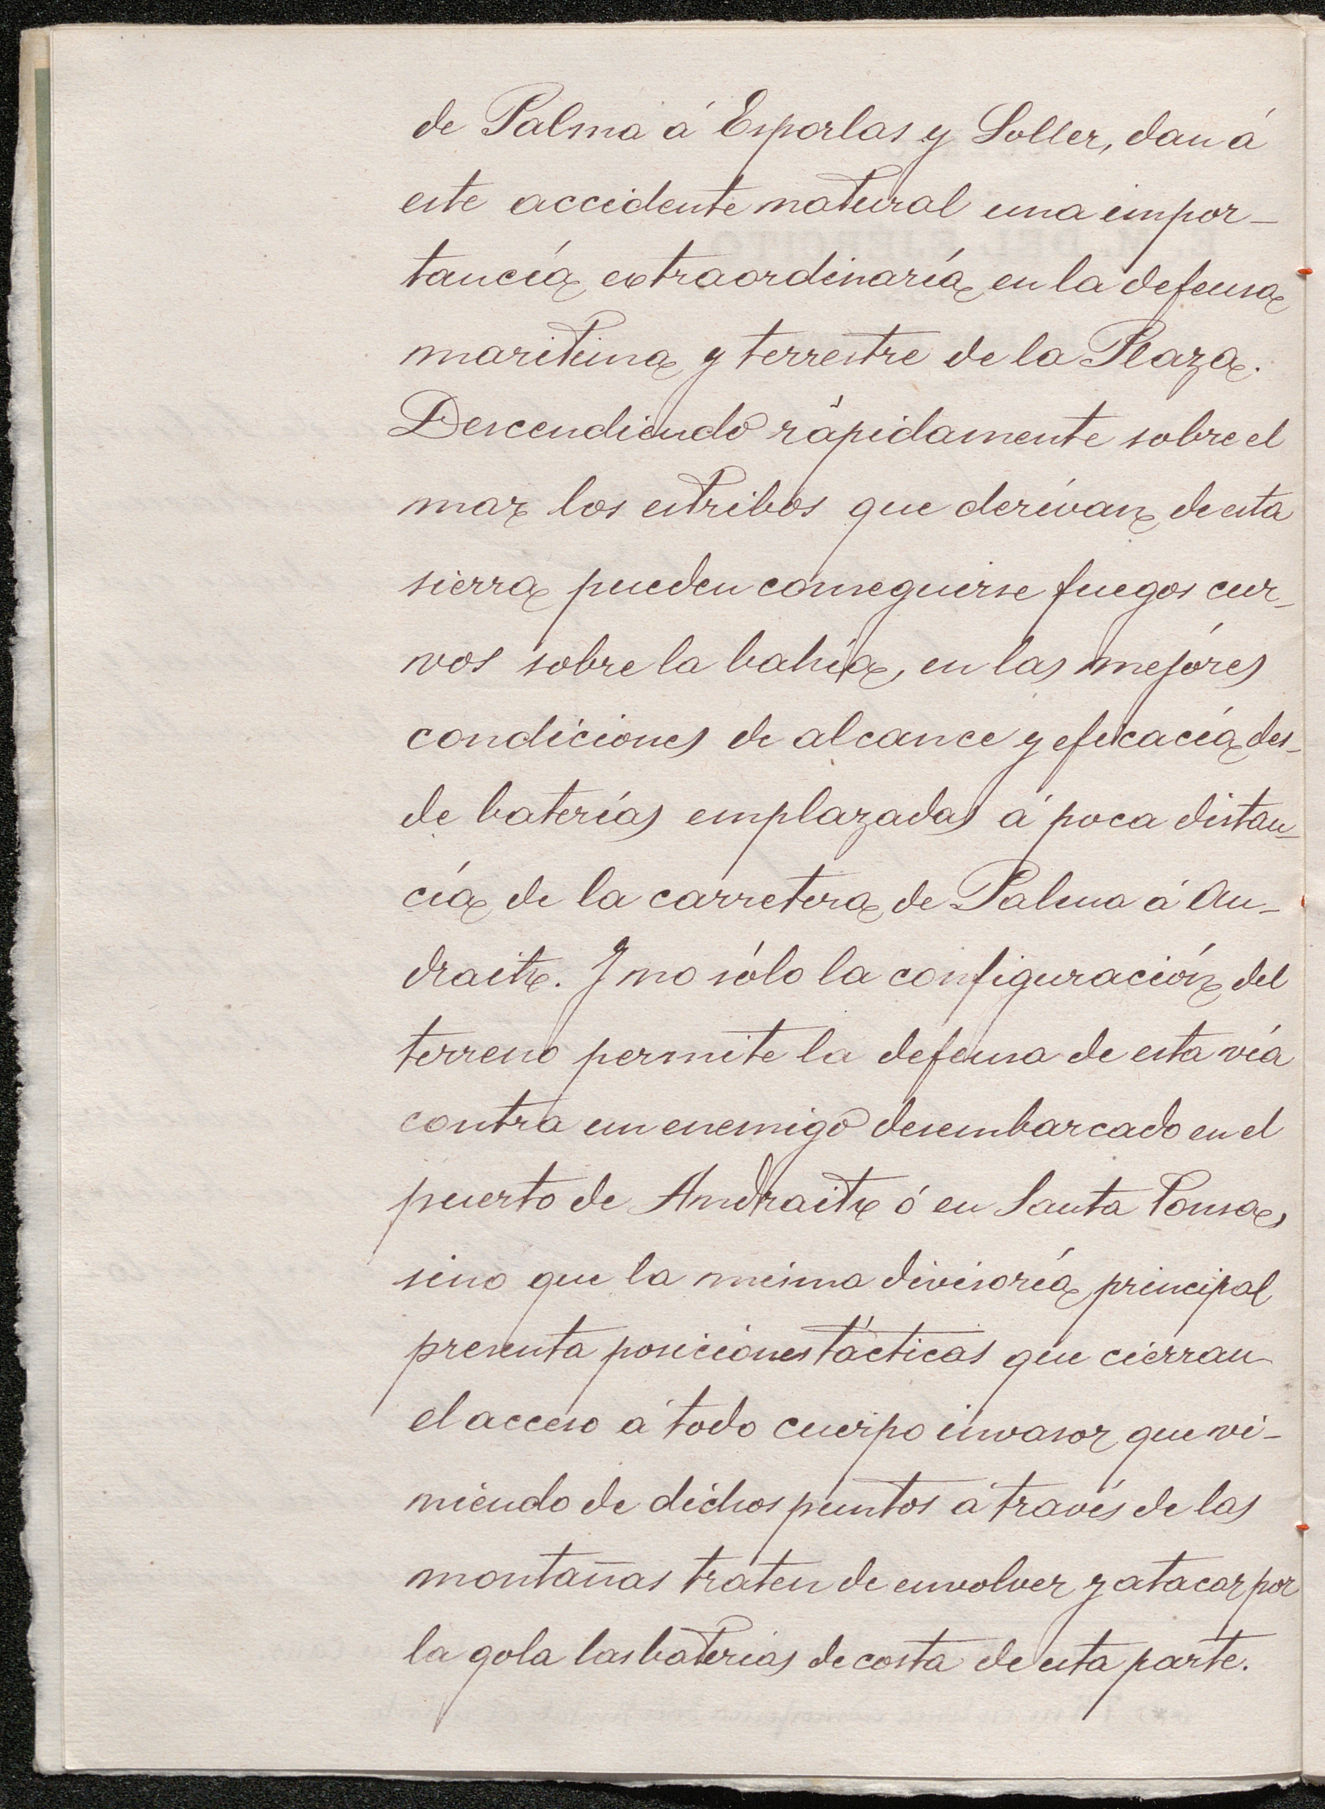 de Palma á Esporlas y Soller, dan á
este accidente natural una impor-
tancía extraordinaría en la defensa
maritima y terrestre de la Plaza.
Descendiendo rápidamente sobre el
mar los estribos que derívan de esta
sierra pueden conseguirse fuegos cur-
vos sobre la bahía, en las mejóres
condiciones de alcance y eficacía des-
de baterías emplazadas á poca distan-
cía de la carretera de Palma á An-
draitx. Y no sólo la configuración del
terreno permite la defensa de esta vía
contra un enemigo desembarcado en el
puerto de Andraitx ó en Santa Ponsa,
sino que la misma divisoría principal
presenta posiciones tácticas que cierran
el acceso á todo cuerpo invasor que vi-
niendo de dichos puntos á través de las
montañas traten de envolver y atacar por
la gola las baterías de costa de esta parte.